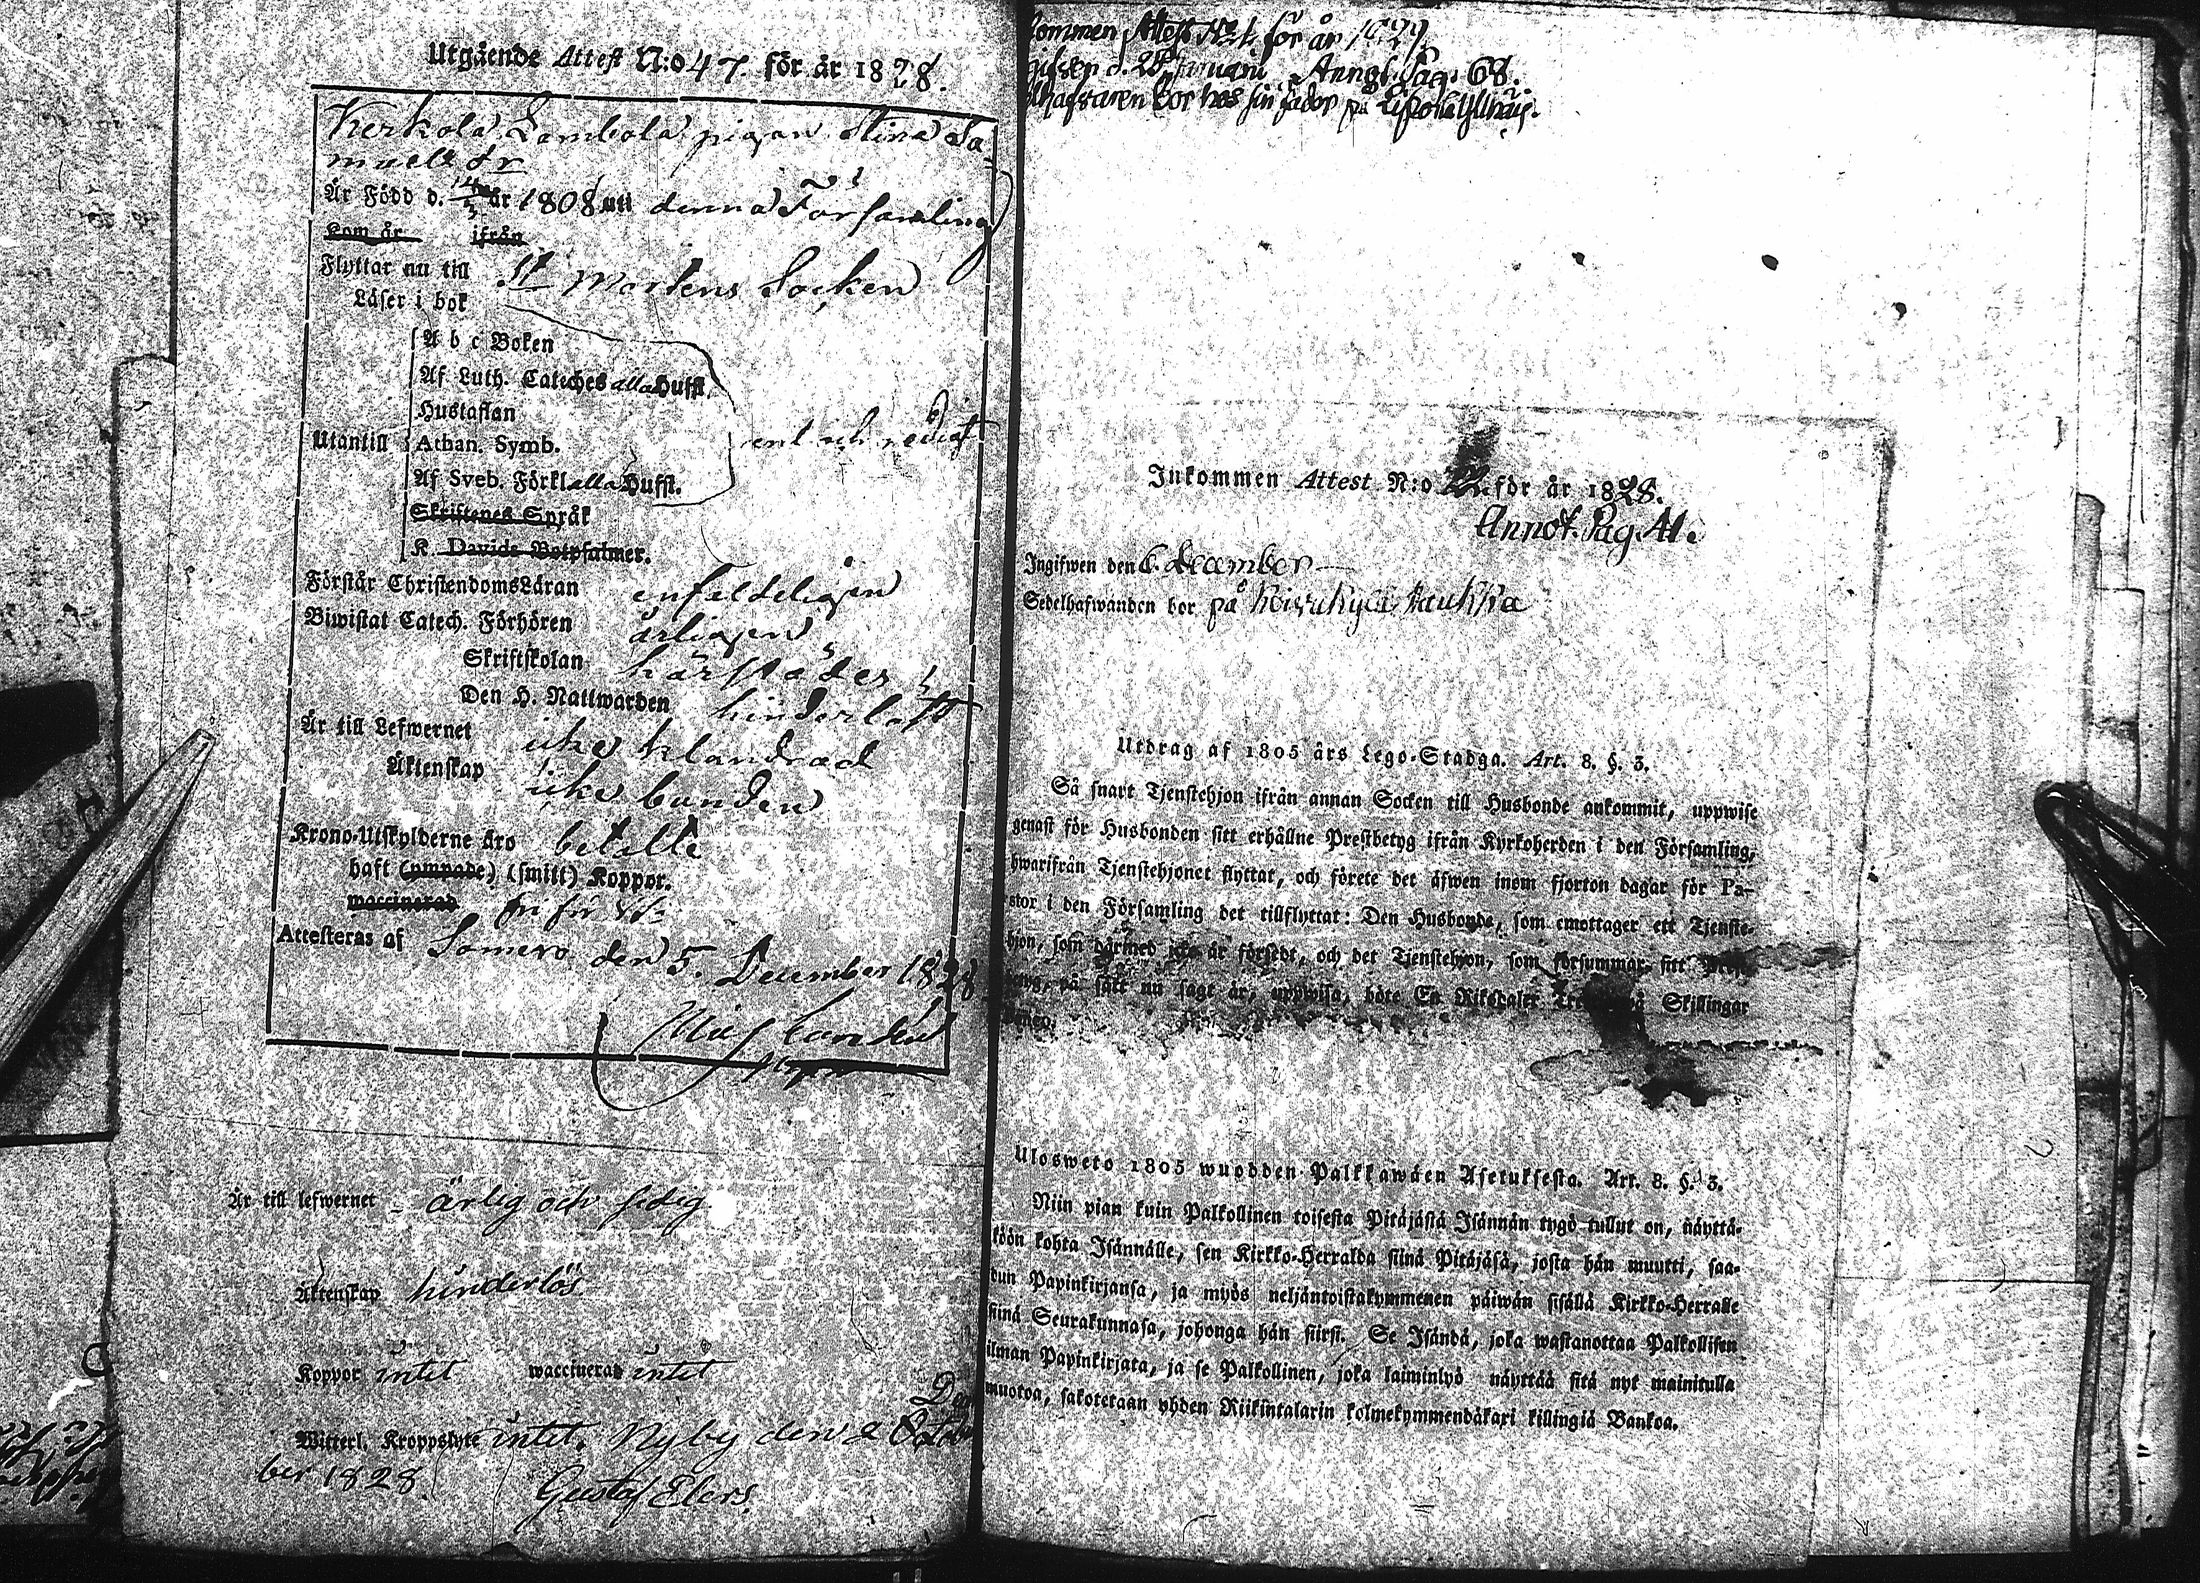 Utgående Attest N:o 47. för år 1828.
Kerkola Lambola pigan Stina Sa-
muels dr
Är Född d. 14/3 år 1808 uti denna Församling
Kom år ifrån
Flyttar nu till St Martens Socken
Läser i bok
A b c Boken
Af Luth. Cateches alla Hufst.
Hustaflan
Utantill Athan. Symb.
Af Sveb. Förkl alla Hufst.
Skriftenes Språk
K. Davids Botpsalmer.
Förstår ChristendomsLäran enfaldeligen
Biwistat Catech. Förhören årligen
Skriftskolan härstädes
Den H. Nattwarden
Är till Lefwernet icke klandrad
Äktenskap icke bunden
Krono-Utskylderne äro betalte
haft (ympade) (smitt) Koppor.
waccinerad
Attesteras af Somero den 5. December 1828
Är till lefwernet - ärlig och sedig
Äktenskap hinderlös
Koppor intet waccinerad intet
Witterl. Kroppslyte intet. Nyby den 2 Octo
ber 1828.
Gustaf Elers
kommen Attest för år 1829
Pag. 68.
bor hos sin fader på
Inkommen Attest N:o 22. för år 1828.
Annot. Pag. 41.
Ingifwen den 6. December
Sedelhafwanden bor på
Utdrag af 1805 års Lego-Stadga. Art. 8. §. 3.
Så snart Tjenstehjon ifrån annan Socken till Husbonde ankommit, uppwise
genast för Husbonden sitt erhållne Prestbetyg ifrån Kyrkoherden i den Församling,
hwarifrån Tjenstehjonet flyttat, och förete det äfwen inom fjorton dagar för Pa-
stor i den Församling det tillflyttat: Den Husbonde, som emottager ett Tjenste-
hjon, som därmed icke är försedt, och det Tjenstehjon, som försummar sitt
på sätt nu sagt är, uppwisa, böte En Riksdaler Skillingar
Banco.
Ulosweto 1805 wuodden Palkkawäen Asetuksesta. Art. 8. §. 3.
Niin pian kuin Palkollinen toisesta Pitäjästä Isännän tygö tullut on, näyttä-
köön kohta Isännälle, sen Kirkko-Herralda siinä Pitäjäsä, josta hän muutti, saa-
dun Papinkirjansa, ja myös neljäntoistakymmenen päiwän sisällä Kirkko-Herralle
siinä Seurakunnasa, johonga hän siirsi. Se Isändä, joka wastanottaa Palkollisen
ilman Papinkirjata, ja se Palkollinen, joka laiminlyö näyttää sitä nyt mainitulla
muotoa, sakotetaan yhden Riikintalarin kolmekymmendäkaxi killingiä Bankoa.